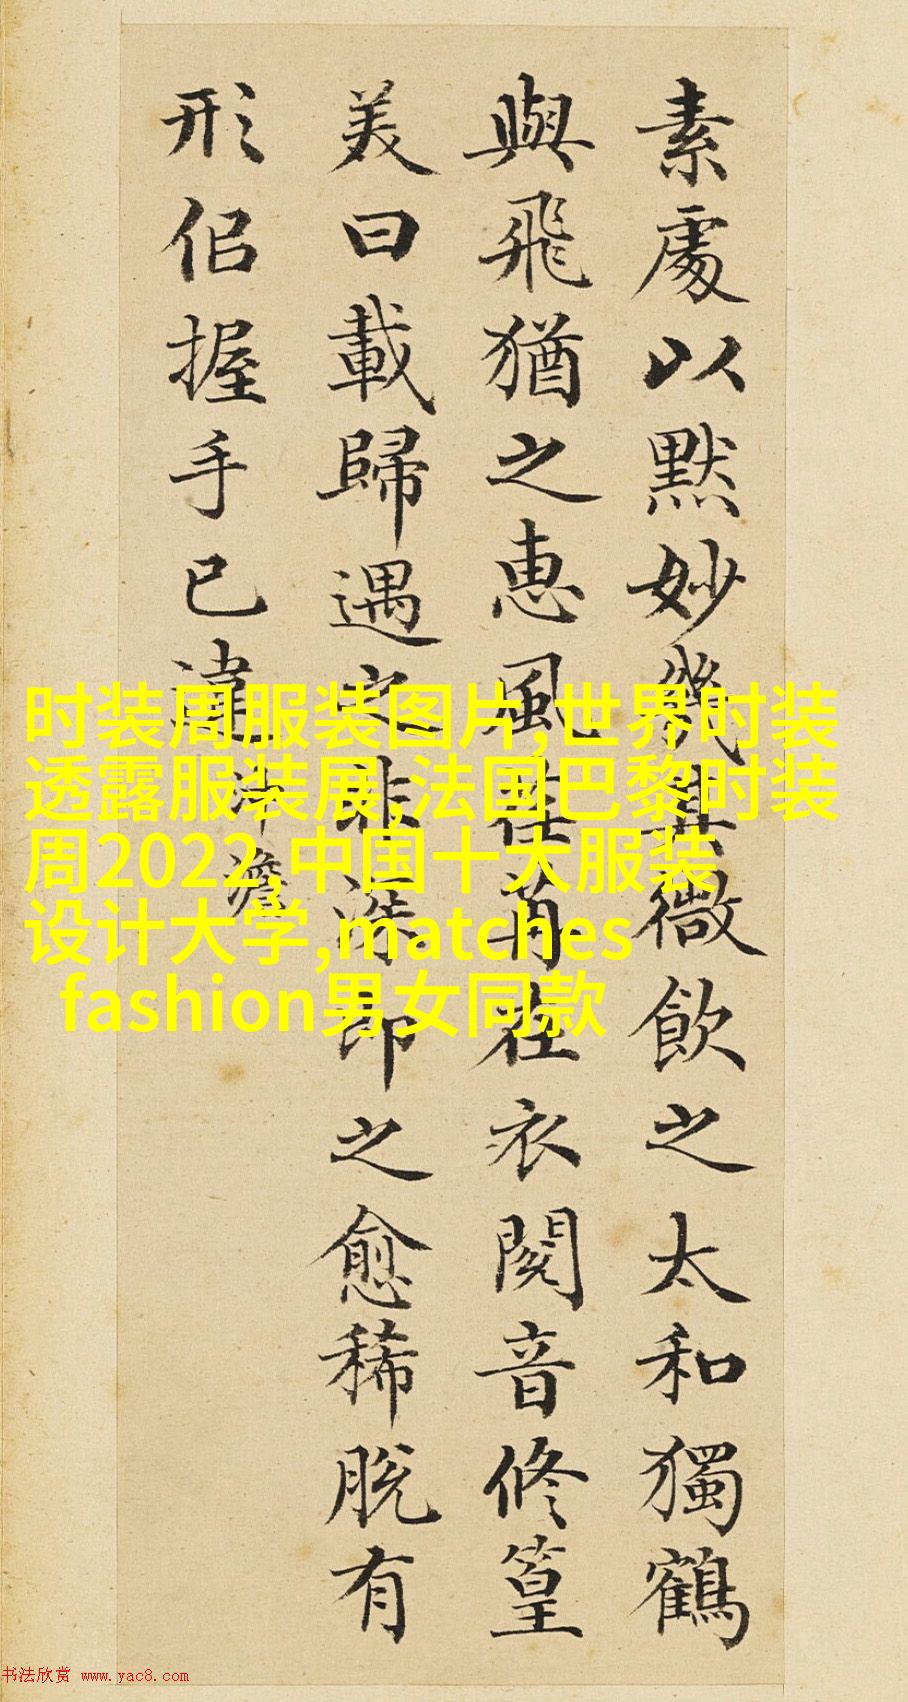 素處以默妙幾其微飲之太和獨鶴
與飛猶之惠風荏苒在衣閱音修篁
美曰載歸遇之非深即之愈稀脫有
形佀握手已違 沖澹
时装周服装图片,世界时装
透露服装展,法国巴黎时装
周2022,中国十大服装
设计大学,matches
fashion男女同款
书法欣赏 www.yac8.com